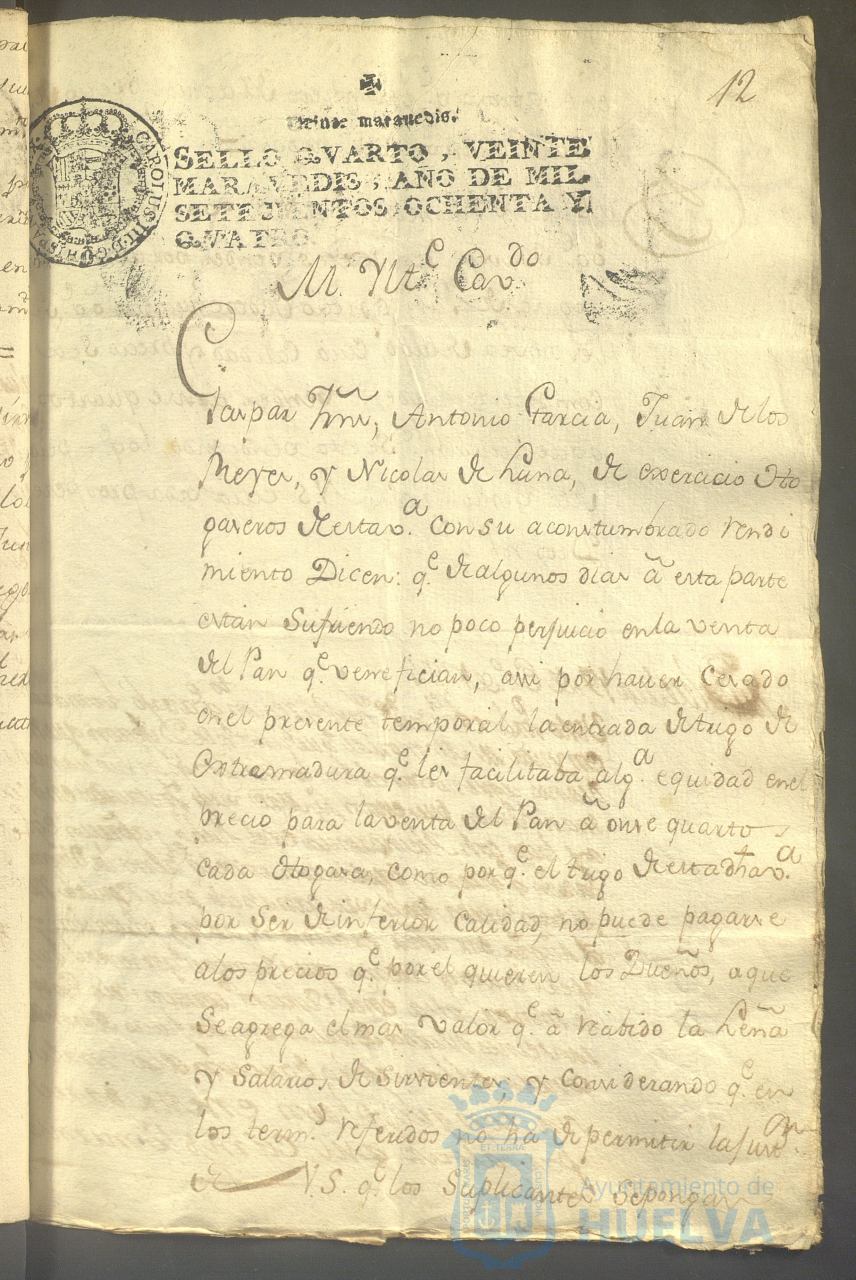 12
Veinte maravedis.
SELLO QVARTO, VEINTE
MARAVEDIS, AÑO DE MIL
SETECIENTOS OCHENTA Y
QVATRO.
CAROLUS III D G HISP
M. Yte. Cavdo.
Gaspar Frnz, Antonio Garcia, Juan de los
Reyes, y Nicolas de Luna, de exercicio Ho
gaseros de esta va. con su acostumbrado rendi
miento Dicen: qe. de algunos dias â esta parte
estan sufriendo no poco perjuicio en la venta
del Pan qe. venefician, assi por haver cesado
en el presente temporal la entrada de trigo de
Extremadura qe. les facilitaba alga. equidad en el
precio para la venta del Pan â onse quartos
cada Hogasa, como por qe. el trigo de esta dha va.
por ser de inferior calidad, no puede pagarse
a los precios qe. por el quieren los Dueños, a que
se agrega el mas valor qe. â recibido la Leña
y salarios de sirvientes, y considerando qe. en
los terms. referidos no ha de permitir la
de V.S. qe. los Suplicantes se pongan
Ayuntamiento de
HUELVA